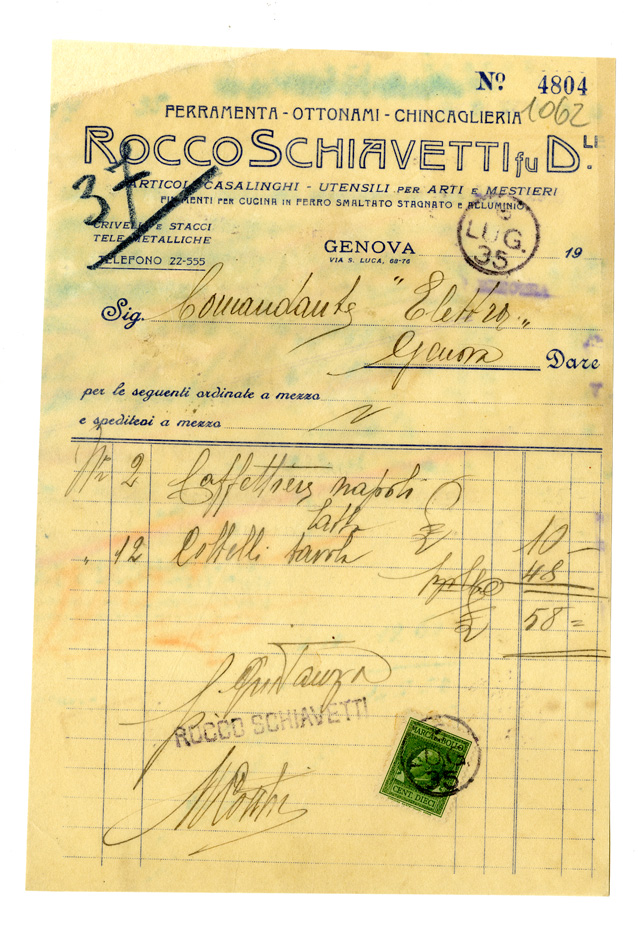 Nº 4804
1062
FERRAMENTA - OTTONAMI - CHINCAGLIERIA
ROCCO SCHIAVETTI fu D.LI
37
ARTICOLI CASALINGHI - UTENSILI PER ARTI E MESTIERI
FINIMENTI PER CUCINA IN FERRO SMALTATO STAGNATO E ALLUMINIO
CRIVELLI E STACCI
TELE METALLICHE
TELEFONO 22-555
GENOVA
VIA S. LUCA, 68-76
LUG.
35
19
Sig. Comandante "Elettra"
Genova Dare
per le seguenti ordinate a mezzo
e speditesi a mezzo
Nr 2 Caffettiere napoli
latta 10 —
" 12 Coltelli tavola 48
58 =
Quietanza
ROCCO SCHIAVETTI
MARCA DA BOLLO
35
CENT. DIECI